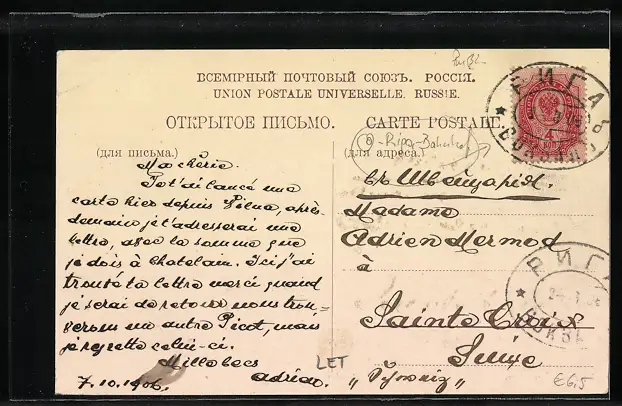 ВСЕМІРНЫЙ ПОЧТОВЫЙ СОЮЗЪ. РОССІЯ.
UNION POSTALE UNIVERSELLE. RUSSIE.
ОТКРЫТОЕ ПИСЬМО. CARTE POSTALE.
(для письма.)
Ma chérie.
Je t'ai lancé une
carte hier depuis Vilna, après
demain je t'adresserai une
lettre, avec la somme que
je dois à Chatelain. Ici j'ai
trouvé ta lettre merci quand
je serai de retour nous trou-
verons un autre Picot, mais
je regrette celui-ci.
Mille becs
Adrien.
7.10.1906.
(для адреса.)
въ Швейцарія.
Madame
Adrien Mermod
à
Sainte Croix
Suisse
„Schweiz"
Riga-Bahnhof
РИГА
ВОКЗАЛ
4
РИГА
ВОКЗАЛ
LET
€6.5